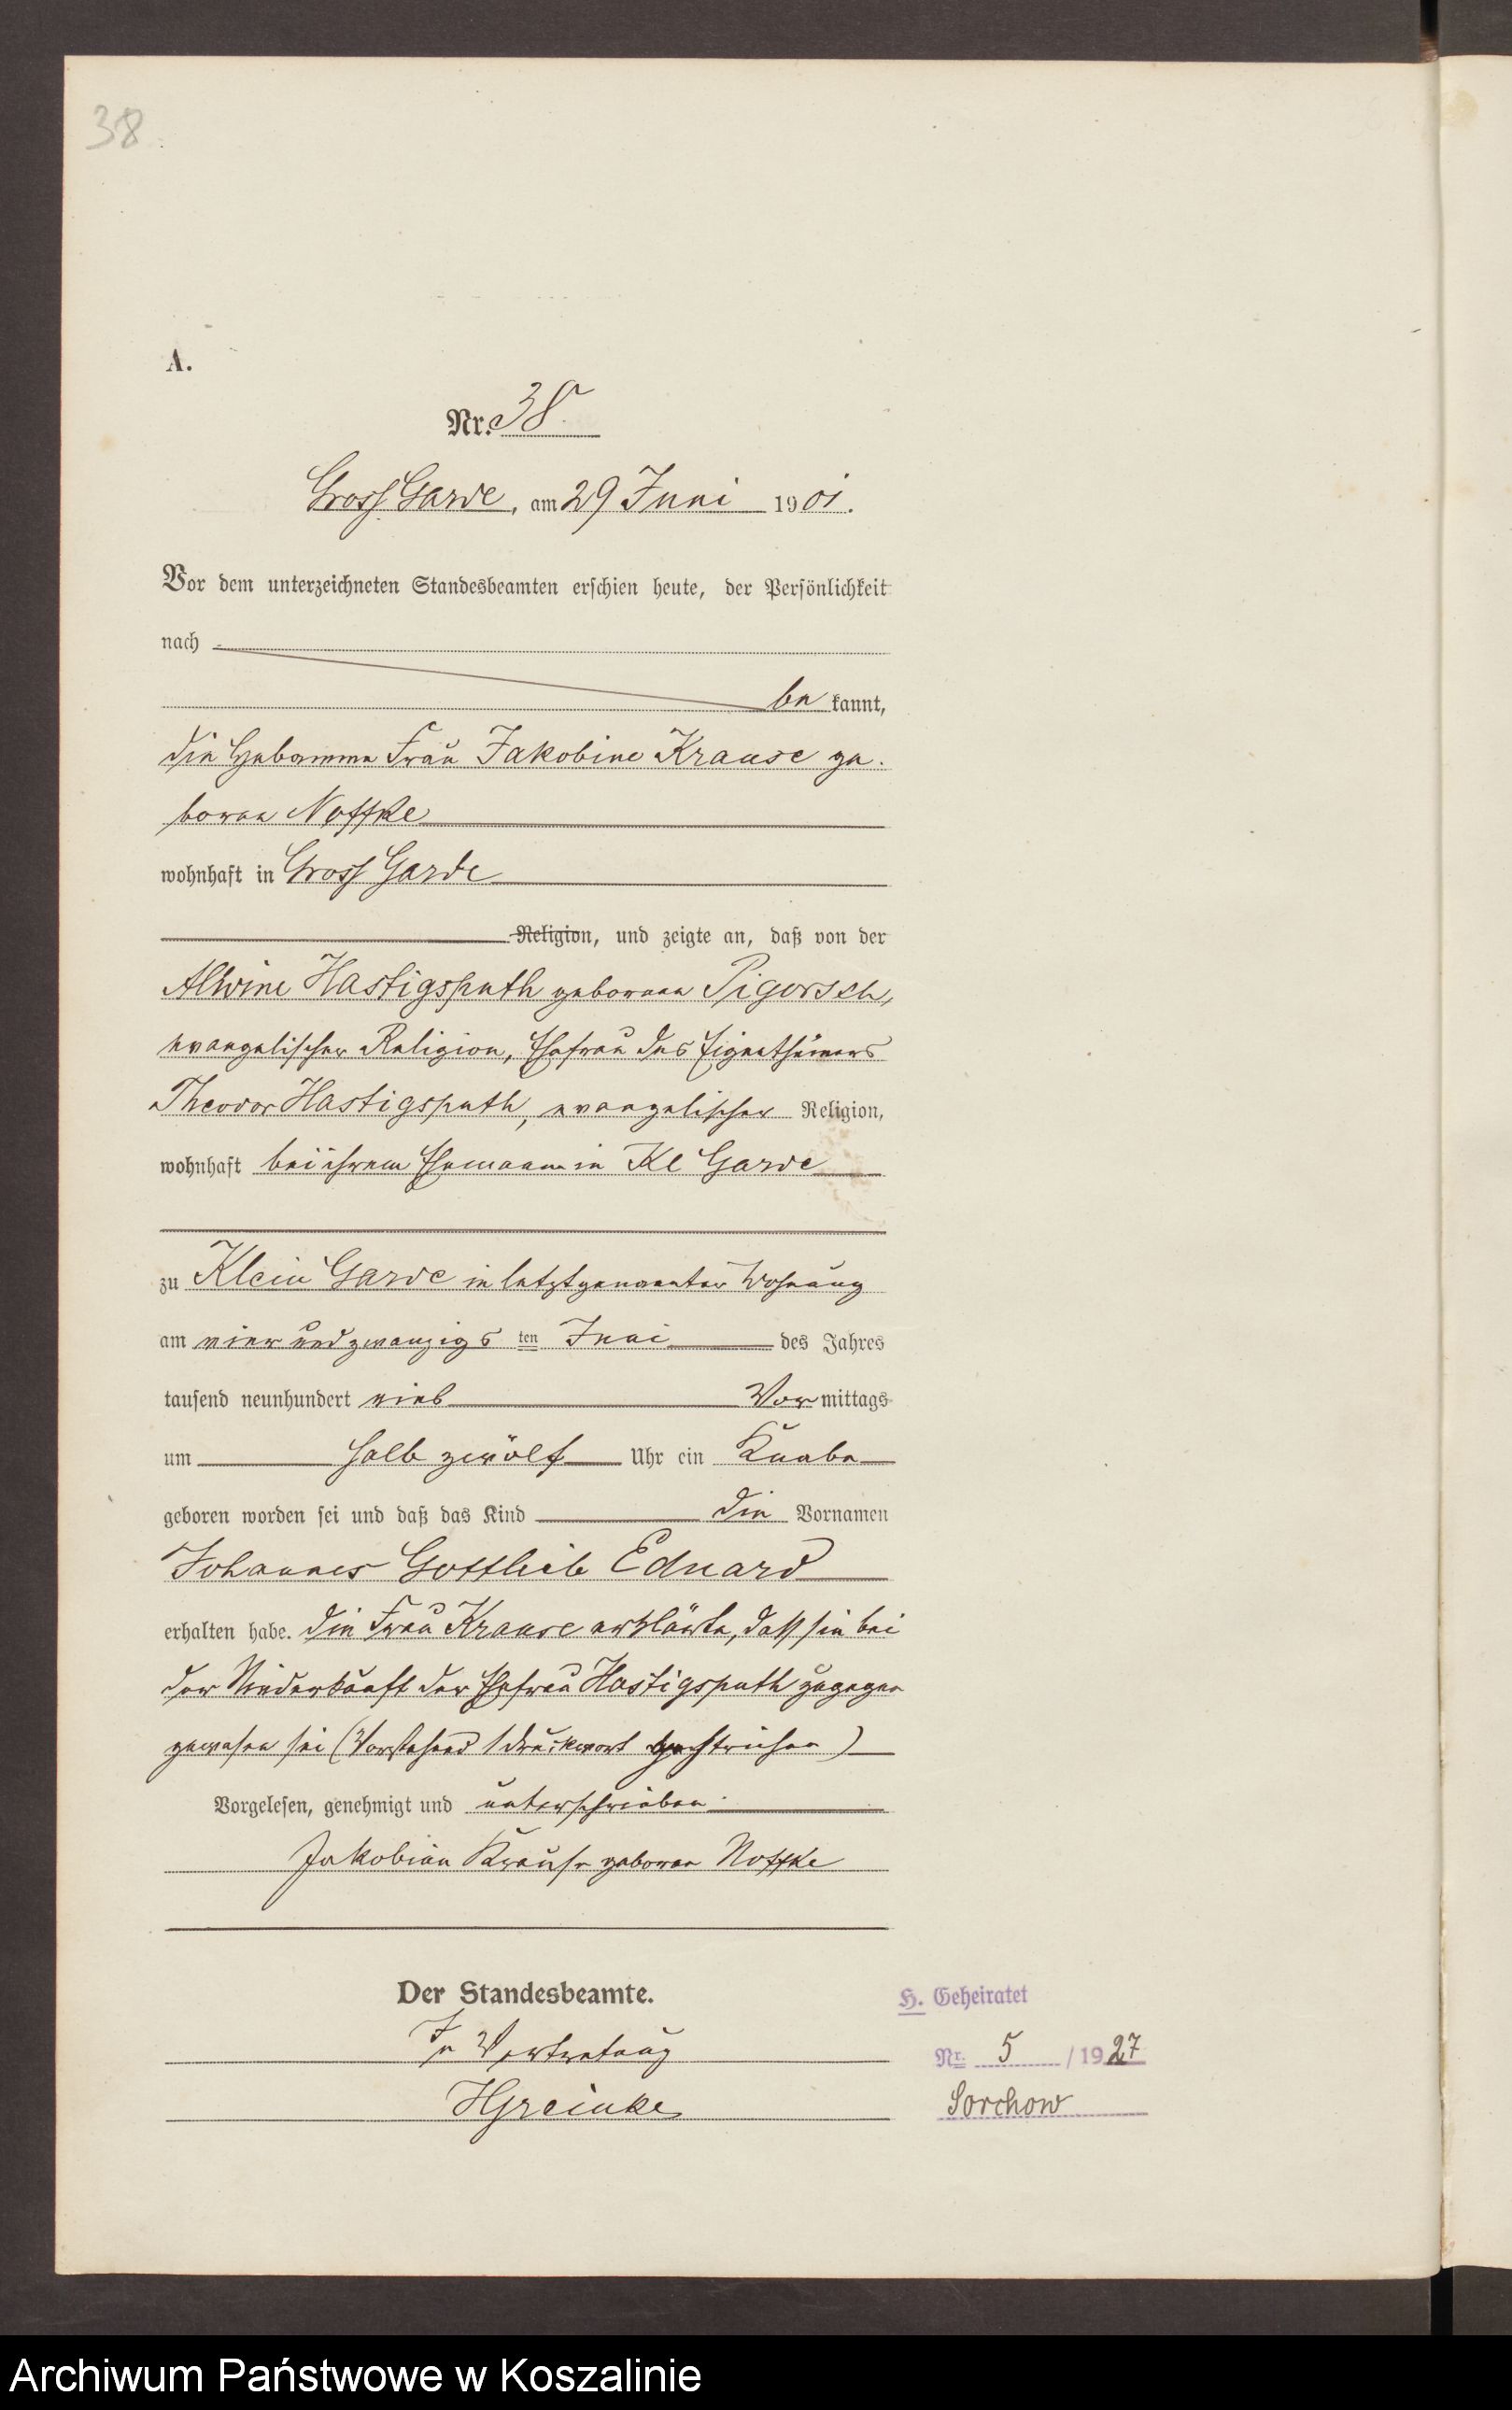 38
A.
Nr. 38.
Gross Garde, am 29 Juni 1901.
Vor dem unterzeichneten Standesbeamten erschien heute, der Persönlichkeit
nach
be kannt,
die Hebamme Frau Jakobine Krause ge-
borene Noffke
wohnhaft in Gross Garde
Religion, und zeigte an, daß von der
Alwine Hastigsputh geborenen Pigorsch,
evangelischer Religion, Ehefrau des Eigenthümers
Theodor Hastigsputh, evangelischer Religion,
wohnhaft bei ihrem Ehemann in Kl Garde
zu Klein Garde in letztgenannter Wohnung
am vier und zwanzigs ten Juni des Jahres
tausend neunhundert eins Vor mittags
um halb zwölf Uhr ein Knabe
geboren worden sei und daß das Kind die Vornamen
Johannes Gottlieb Eduard
erhalten habe. Die Frau Krause erklärte, daß sie bei
der Niederkunft der Ehefrau Hastigsputh zugegen
gewesen sei (Vorstehend 1 Druckwort gestrichen)
Vorgelesen, genehmigt und unterschrieben.
Jakobine Krause geborene Noffke
Der Standesbeamte.
In Vertretung
HGreinke
H. Geheiratet
Nr. 5 / 1927
Sorchow
Archiwum Państwowe w Koszalinie